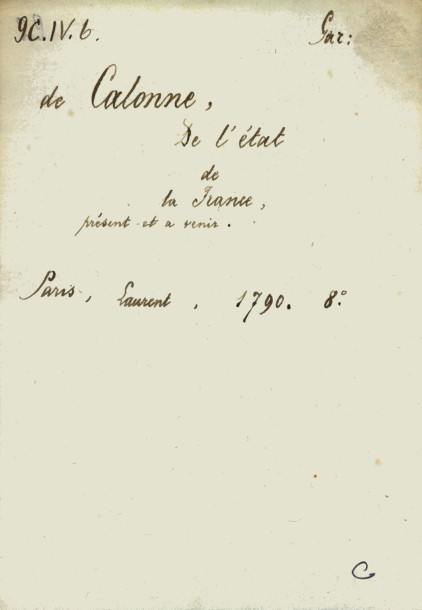 9C.IV.b. Gar:
de Calonne,
De l'état
de
la France,
présent et a venir.
Paris, Laurent, 1790. 8°
C